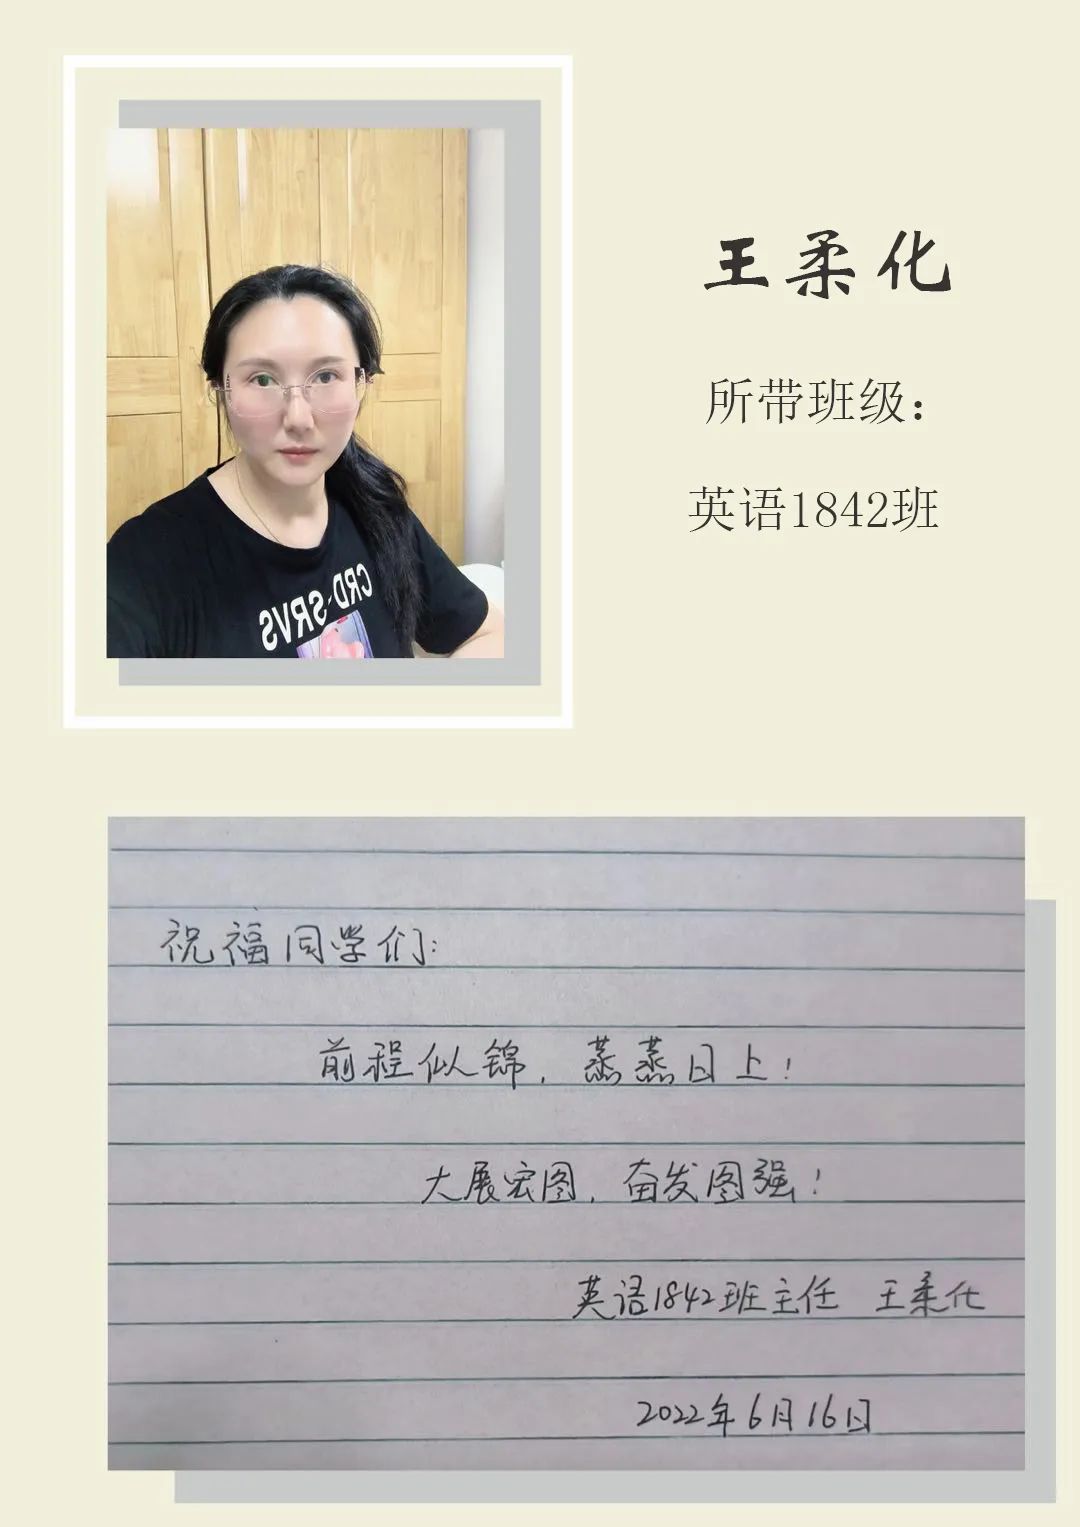 王柔化
所带班级：
英语1842班
CRD-SRVS
祝福同学们:
前程似锦，蒸蒸日上！
大展宏图，奋发图强！
英语1842班主任 王柔化
2022年6月16日